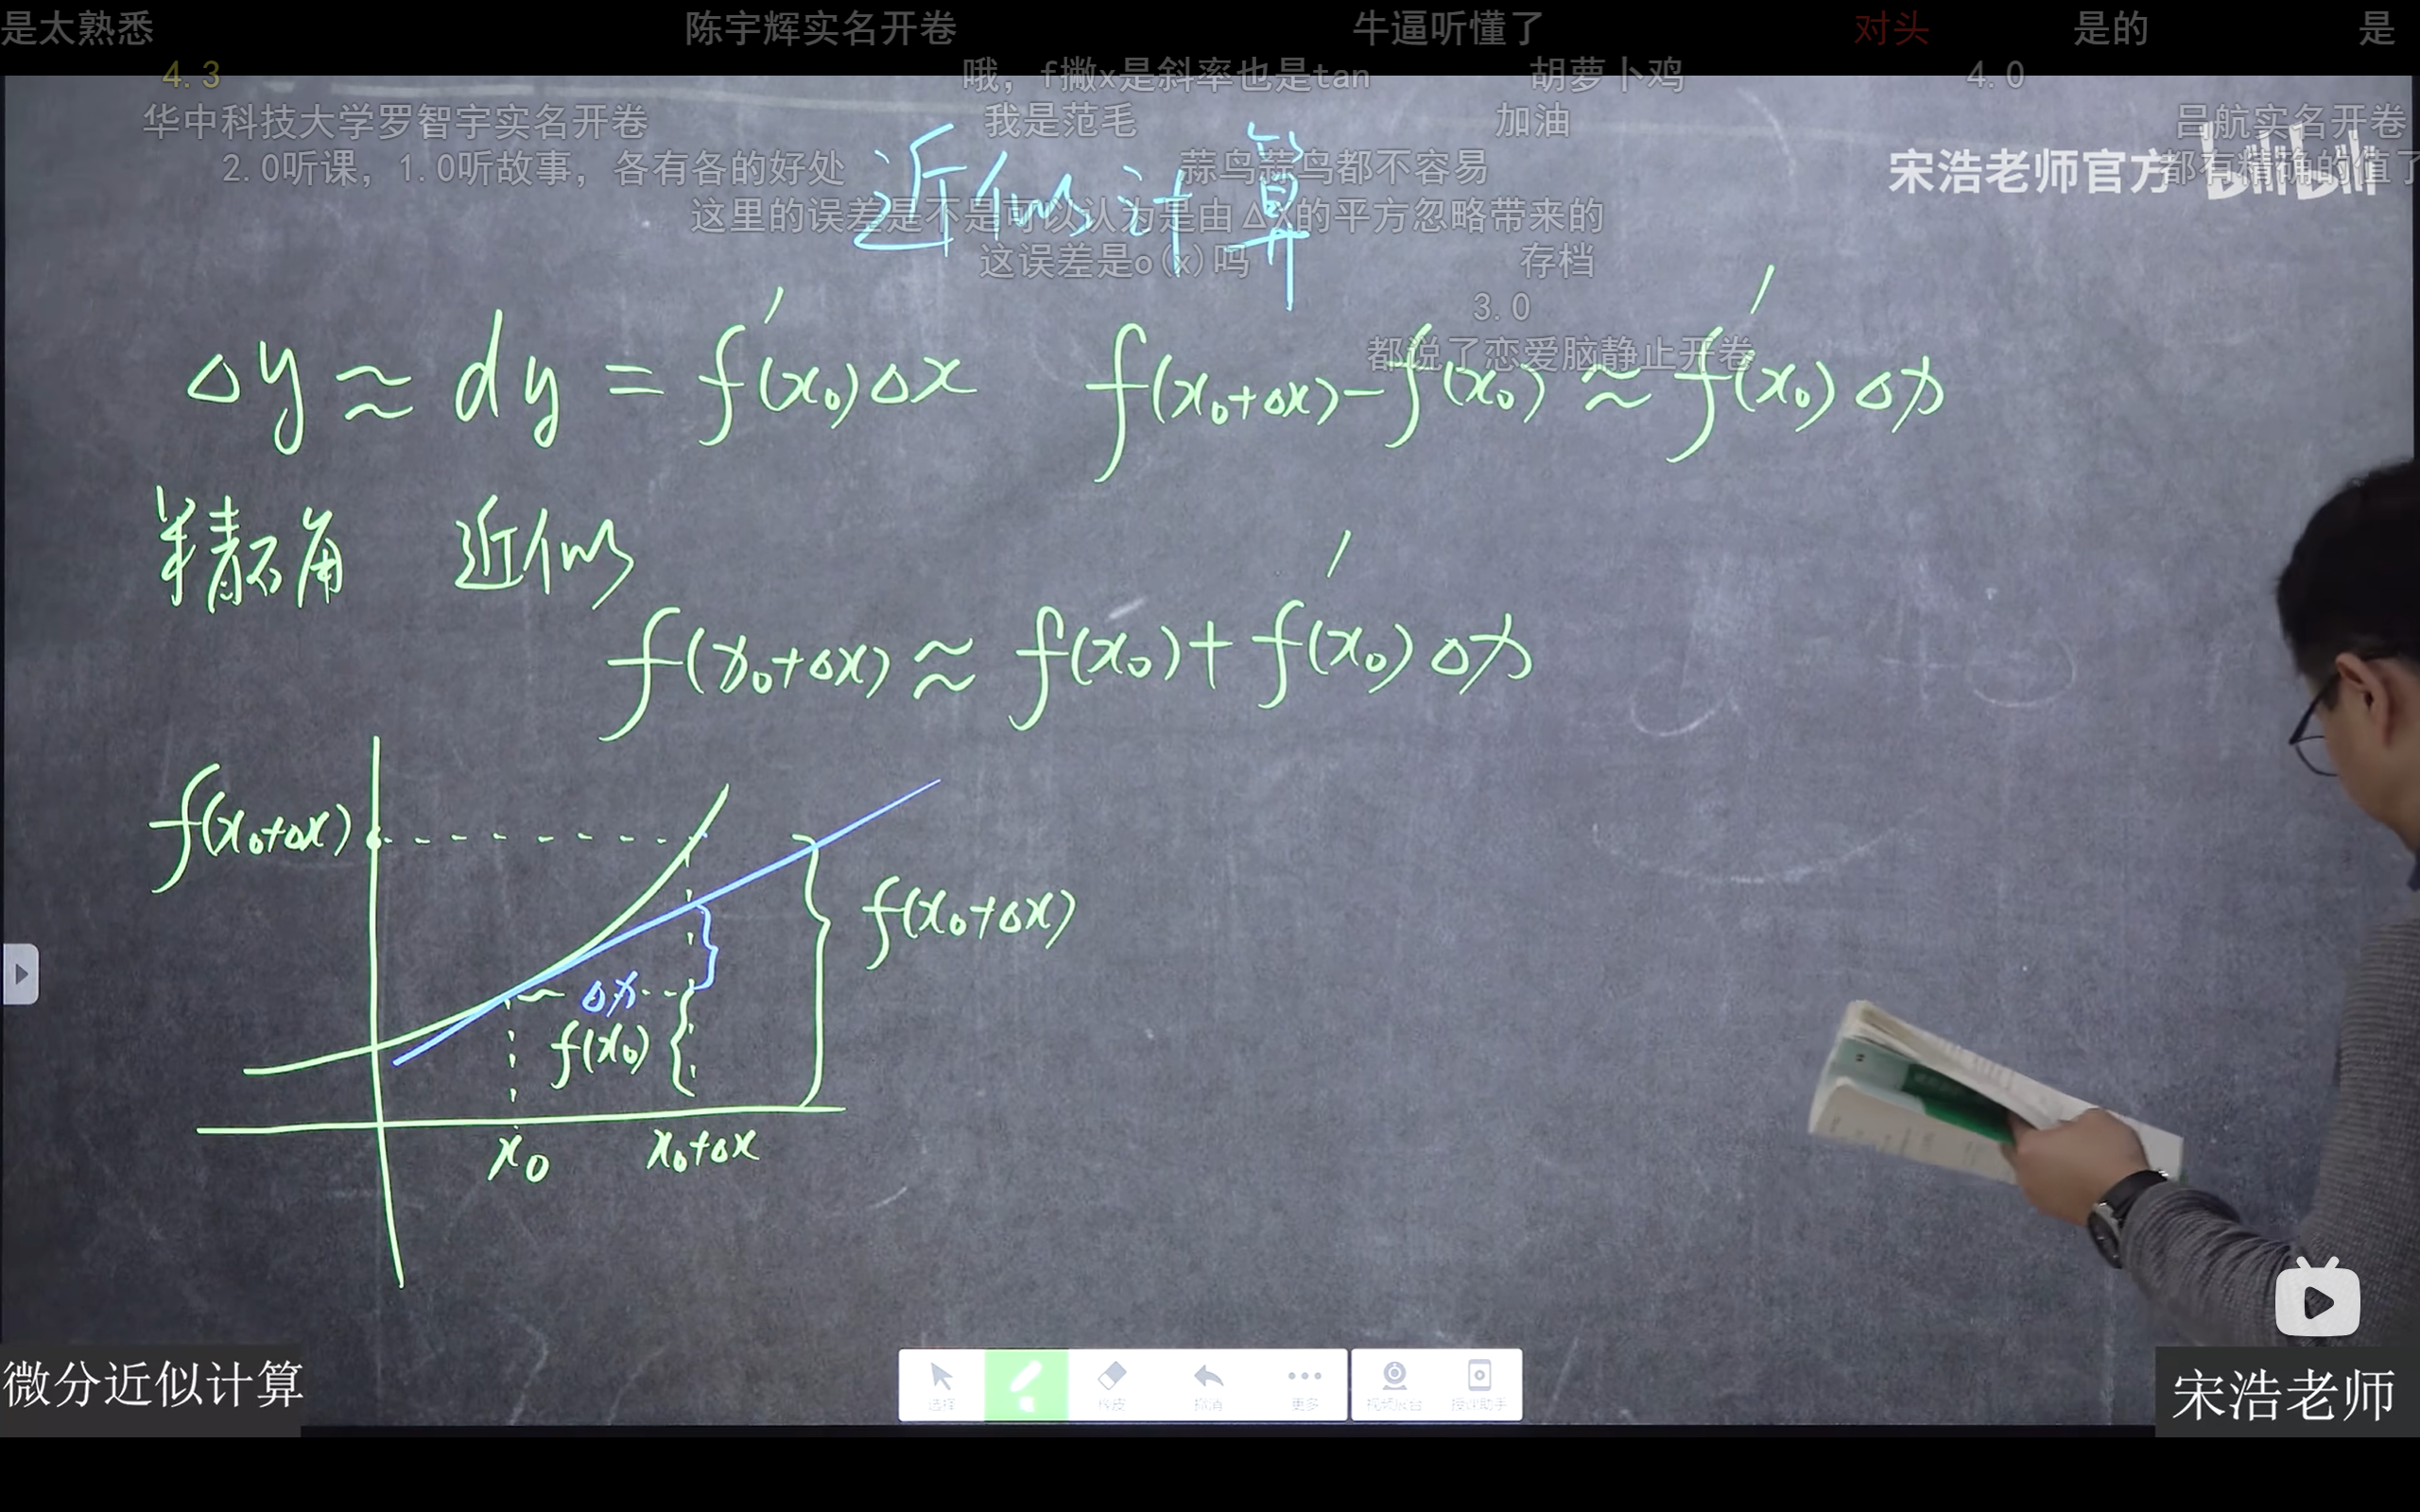 是太熟悉 陈宇辉实名开卷 牛逼听懂了 对头 是的 是
4.3 哦，f撇x是斜率也是tan 胡萝卜鸡 4.0
华中科技大学罗智宇实名开卷 我是范毛 加油 吕航实名开卷
2.0听课，1.0听故事，各有各的好处 蒜鸟蒜鸟都不容易 都有精确的值了
宋浩老师官方 bilibili
近似计算
这里的误差是不是可以认为是由△x的平方忽略带来的
这误差是o(x)吗 存档
3.0
都说了恋爱脑静止开卷
△y ≈ dy = f′(x₀)△x f(x₀+△x)-f(x₀) ≈ f′(x₀)△x
精确 近似
f(x₀+△x) ≈ f(x₀)+f′(x₀)△x
f(x₀+△x)
f(x₀+△x)
△x
f(x₀)
x₀ x₀+△x
微分近似计算
选择 笔 橡皮 撤消 更多 视频展台 授课助手
宋浩老师